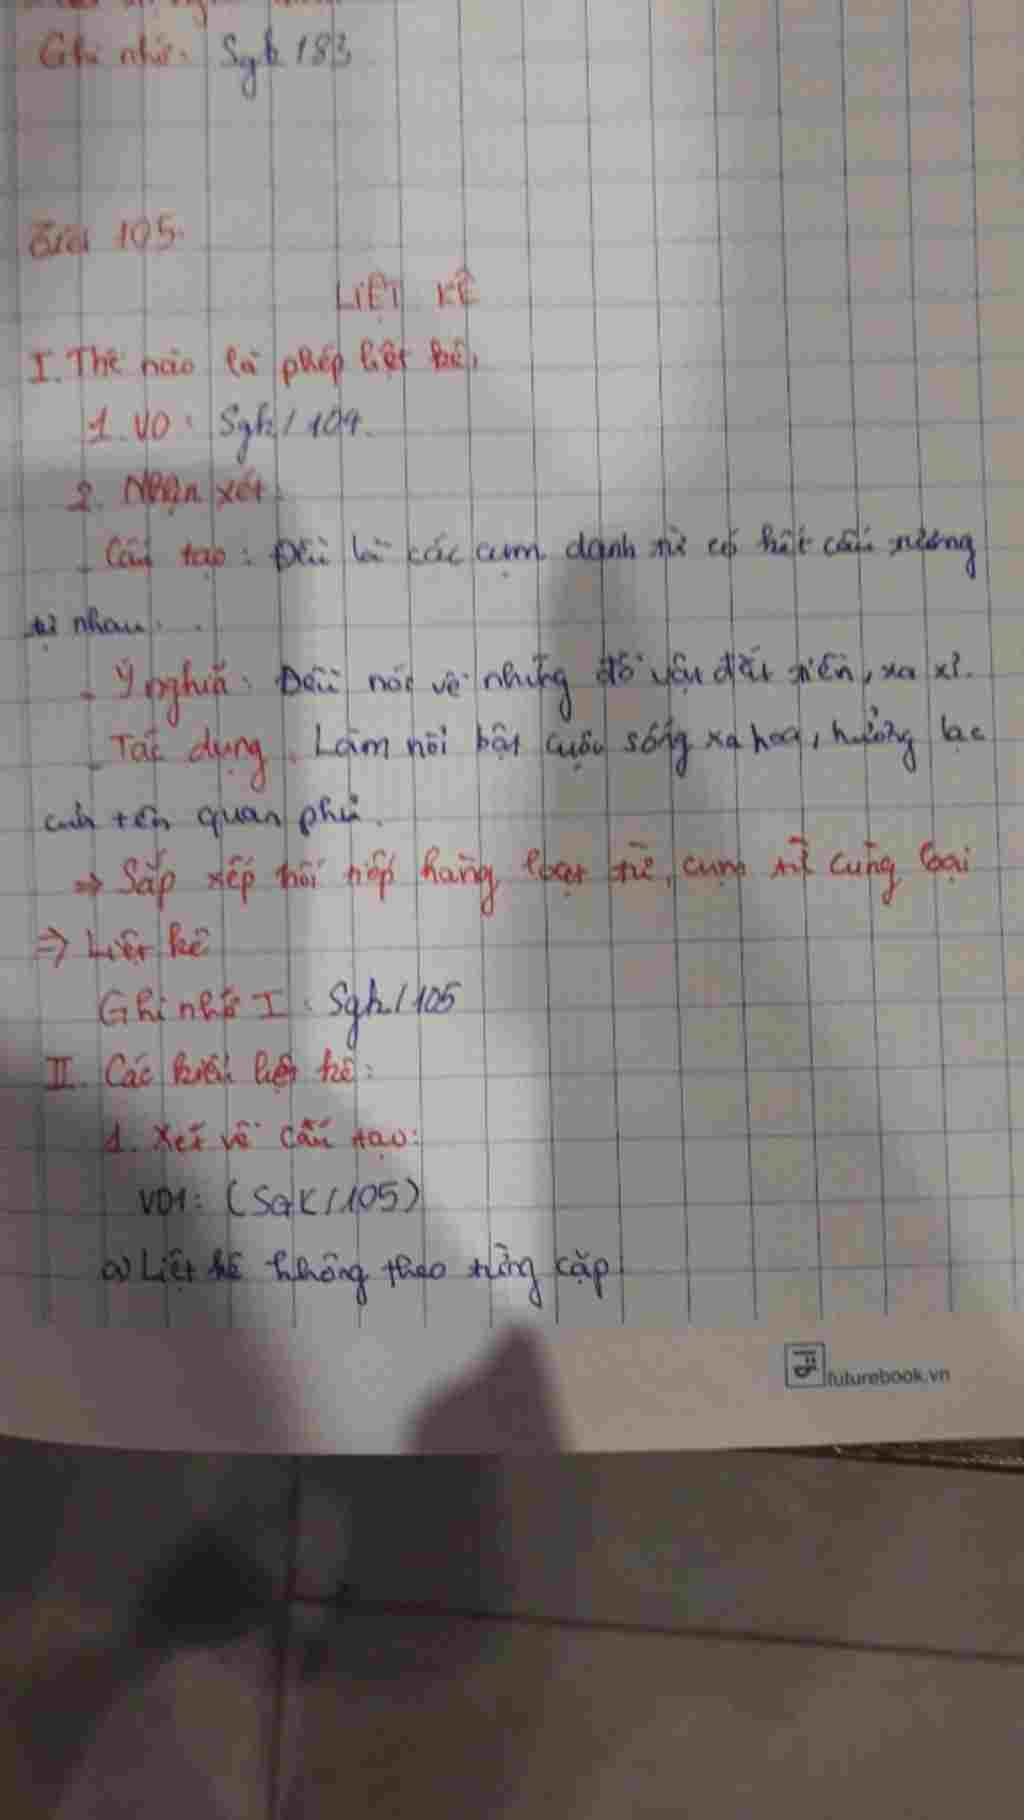 Ghi nhớ: Sgk 183
105.
LIỆT KÊ
I. Thế nào là phép liệt kê,
1. VD: Sgk / 104.
2. Nhận xét
- Cấu tạo: Đều là các cụm danh từ có kết cấu tương
tự nhau.
- Ý nghĩa: Đều nói về những đồ vật đắt tiền, xa xỉ.
- Tác dụng. Làm nổi bật cuộc sống xa hoa, hưởng lạc
của tên quan phủ.
=> Sắp xếp nối tiếp hàng loạt từ, cụm từ cùng loại
=> Liệt kê
Ghi nhớ I: Sgk / 105
II. Các kiểu liệt kê:
1. Xét về cấu tạo:
VD1: (SGK / 105)
a) Liệt kê không theo từng cặp
futurebook.vn